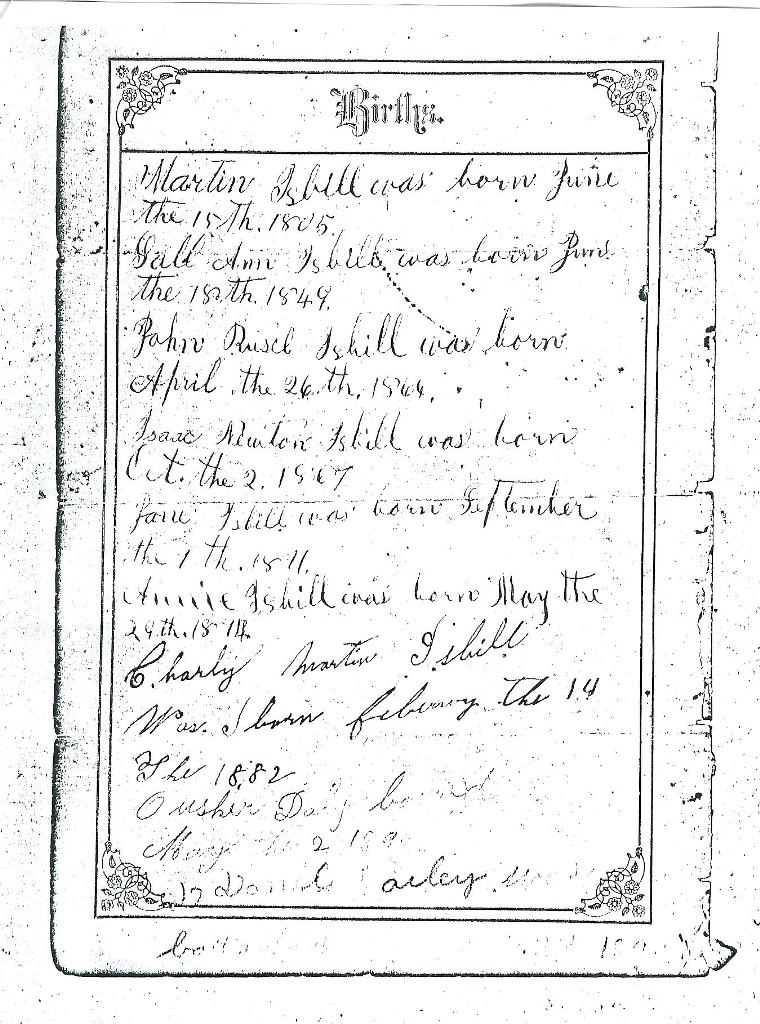 Births.
Martin Isbill was born June
the 15th. 1805.
Sall Ann Isbill was born June
the 18th. 1849.
John Rusel Isbill was born
April the 26th, 1866.
Isaac Newton Isbill was born
Oct. the 2. 1867
Jane Isbill was born September
the 1th. 1871.
Annie Isbill was born May the
29th. 1874.
Charly Martin Isbill
Was. born the 14
The 1882
May 2